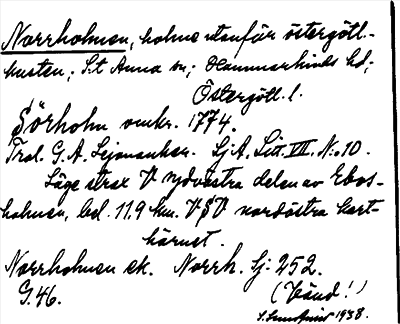 Norrholmen, holme utanför östergötl.-
kusten; S:t Anna sn; Hammarkinds hd;
Östergötl. l.
Sörholm omkr. 1774.
Trol. G. A. Lejonanker. Sj. A, Litt. VII. N:o 10.
Läge strax V sydvästra delen av Ebos-
holmen, bel. 11.9 km. VSV nordöstra kart-
hörnet.
Norrholmen ek. Norrk. Sj: 252.
G. 46. (Vänd!)
1938.